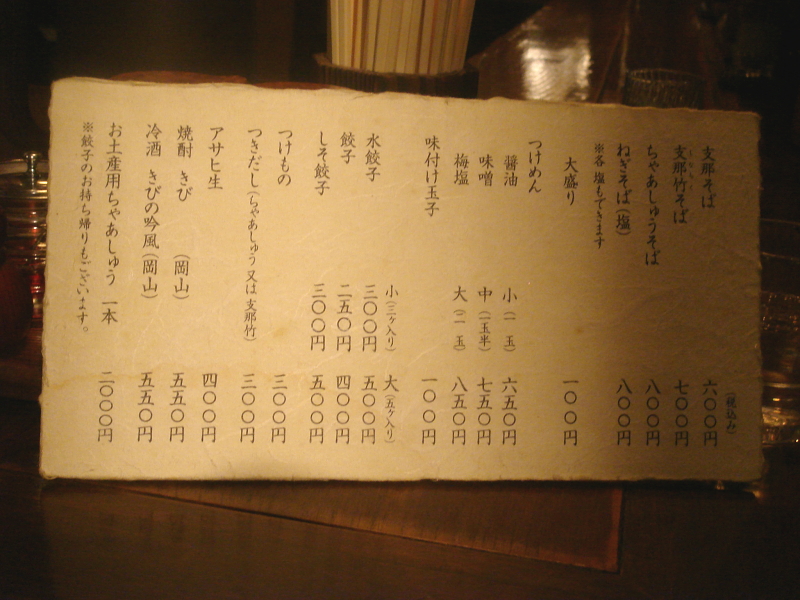 (税込み)
支那そば 六〇〇円
支那竹そば 七〇〇円
ちゃあしゅうそば 八〇〇円
ねぎそば(塩) 八〇〇円
※各 塩もできます
大盛り 一〇〇円
つけめん
醤油 小(一 玉) 六五〇円
味噌 中(一玉半) 七五〇円
梅塩 大(二 玉) 八五〇円
味付け玉子 一〇〇円
小(三ヶ入り) 大(五ヶ入り)
水餃子 三〇〇円 五〇〇円
餃子 二五〇円 四〇〇円
しそ餃子 三〇〇円 五〇〇円
つけもの 三〇〇円
つきだし(ちゃあしゅう又は支那竹) 三〇〇円
アサヒ生 四〇〇円
焼酎 きび (岡山) 五五〇円
冷酒 きびの吟風(岡山) 五五〇円
お土産用ちゃあしゅう 一本 二〇〇〇円
※餃子のお持ち帰りもございます。